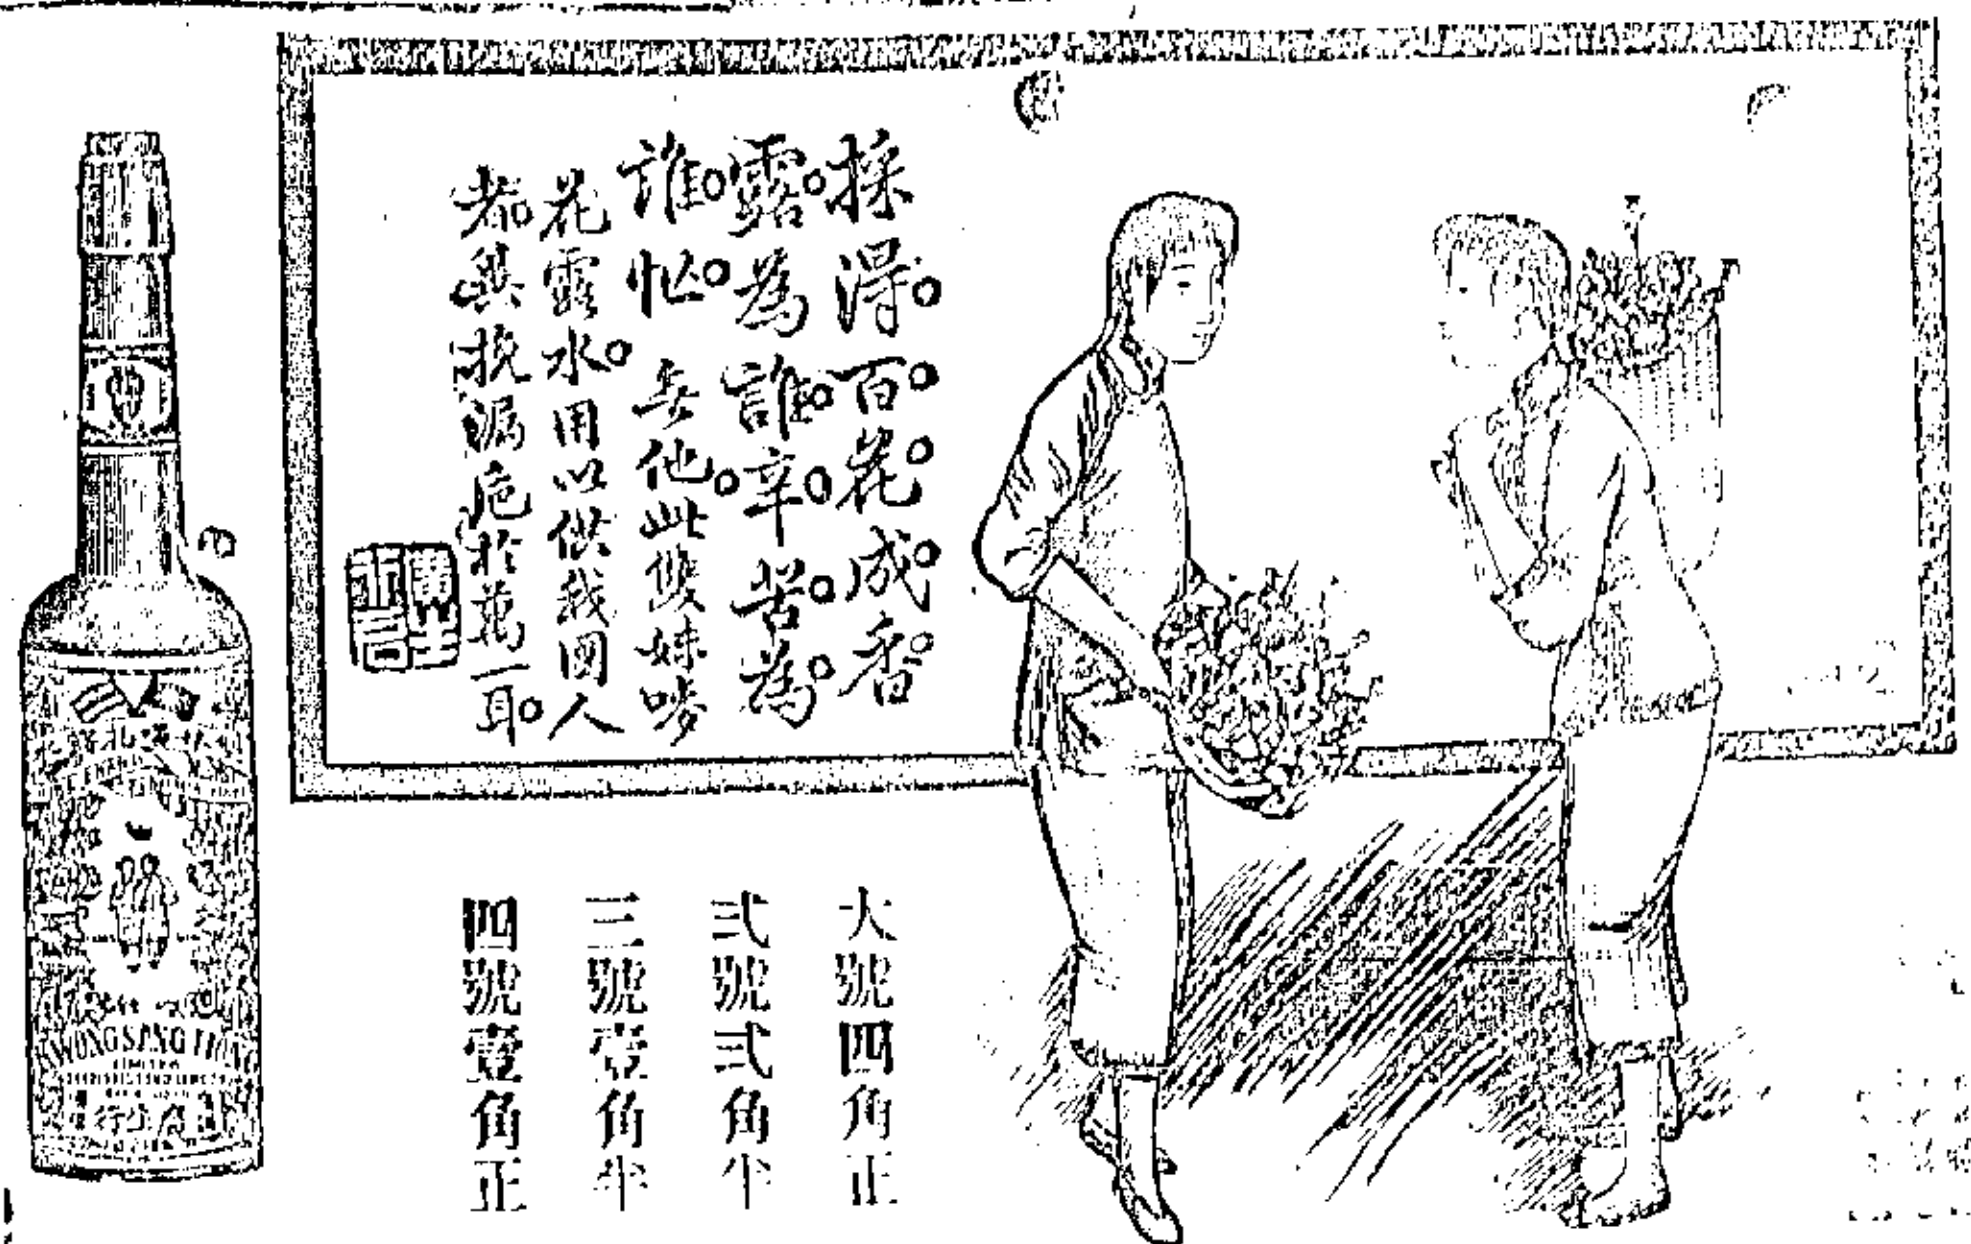 採得百花成香
露為誰辛苦為
誰忙 無他此雙妹嘜
花露水用以供我國人
者與挽漏卮於萬一耳
大號四角正
弍號弍角半
三號壹角半
四號壹角正
KWONG SANG HONG
LIMITED